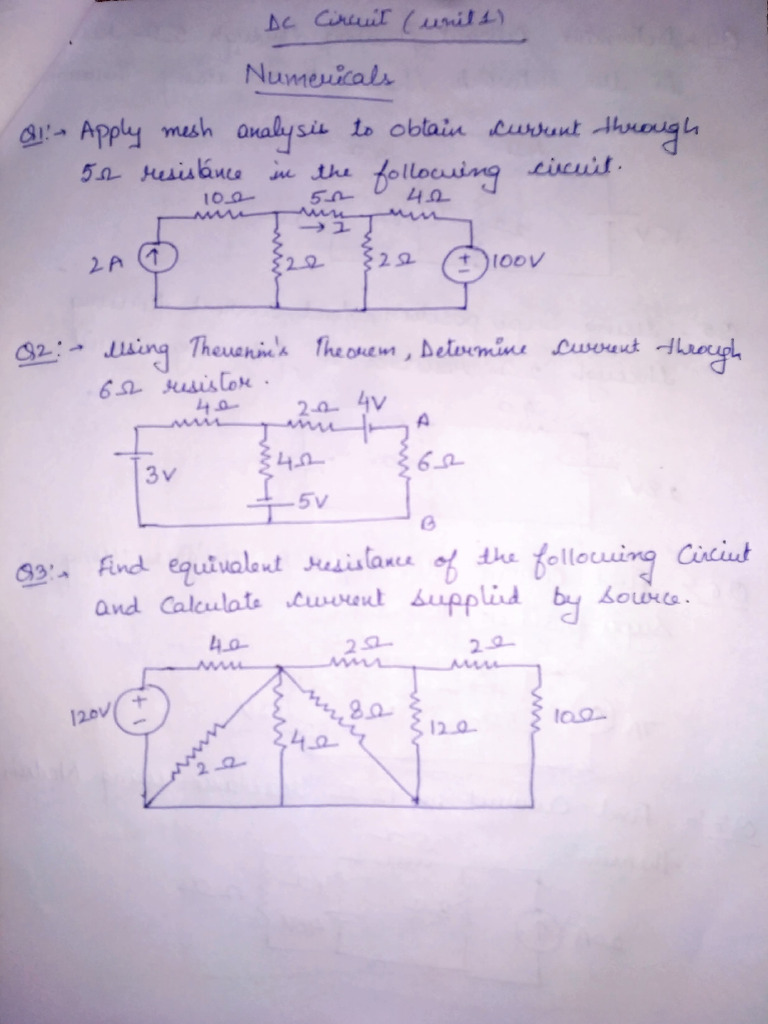 DC Circuit (unit 1)
Numericals
Q1:→ Apply mesh analysis to obtain current through
5Ω resistance in the following circuit.
10Ω 5Ω 4Ω
→ I
2A 2Ω 2Ω + - 100V
Q2:→ Using Thevenin's Theorem, Determine current through
6Ω resistor.
4Ω 2Ω 4V A
3V 4Ω 6Ω
5V
B
Q3:→ Find equivalent resistance of the following Circiut
and Calculate current supplied by source.
4Ω 2Ω 2Ω
120V + - 2Ω 4Ω 8Ω 12Ω 10Ω